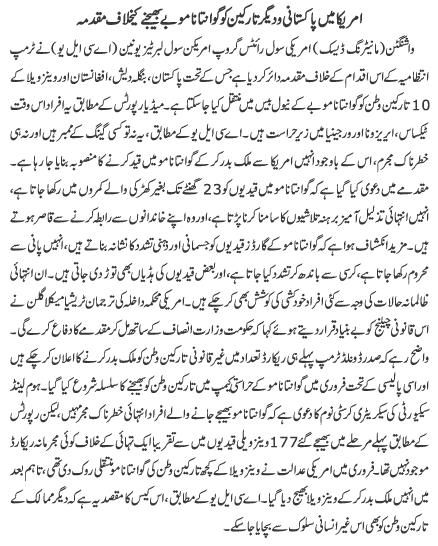 امریکا میں پاکستانی و دیگر تارکین کو گوانتانامو بے بھیجنے کیخلاف مقدمہ
واشنگٹن (مانیٹرنگ ڈیسک) امریکی سول رائٹس گروپ امریکن سول لبرٹیز یونین (اے سی ایل یو) نے ٹرمپ
انتظامیہ کے اس اقدام کے خلاف مقدمہ دائر کر دیا ہے جس کے تحت پاکستان، بنگلہ دیش، افغانستان اور وینزویلا کے
10 تارکین وطن کو گوانتانامو بے کے نیول بیس میں منتقل کیا جا سکتا ہے۔ میڈیا رپورٹس کے مطابق یہ افراد اس وقت
ٹیکساس، ایریزونا اور ورجینیا میں زیر حراست ہیں۔ اے سی ایل یو کے مطابق، یہ نہ تو کسی گینگ کے ممبر ہیں اور نہ ہی
خطرناک مجرم، اس کے باوجود انہیں امریکا سے ملک بدر کر کے گوانتانامو میں قید کرنے کا منصوبہ بنایا جا رہا ہے۔
مقدمے میں دعویٰ کیا گیا ہے کہ گوانتانامو میں قیدیوں کو 23 گھنٹے تک بغیر کھڑکی والے کمروں میں رکھا جاتا ہے،
انہیں انتہائی تذلیل آمیز برہنہ تلاشیوں کا سامنا کرنا پڑتا ہے، اور وہ اپنے خاندانوں سے رابطہ کرنے سے قاصر ہوتے
ہیں۔ مزید انکشاف ہوا ہے کہ گوانتانامو کے گارڈز قیدیوں کو جسمانی اور ذہنی تشدد کا نشانہ بناتے ہیں، انہیں پانی سے
محروم رکھا جاتا ہے، کرسی سے باندھ کر تشدد کیا جاتا ہے، اور بعض قیدیوں کی ہڈیاں بھی توڑ دی جاتی ہیں۔ ان انتہائی
ظالمانہ حالات کی وجہ سے کئی افراد خودکشی کی کوشش بھی کر چکے ہیں۔ امریکی محکمہ داخلہ کی ترجمان ٹریشیا میکلا گلن نے
اس قانونی چیلنج کو بے بنیاد قرار دیتے ہوئے کہا کہ حکومت وزارت انصاف کے ساتھ مل کر مقدمے کا دفاع کرے گی۔
واضح رہے کہ صدر ڈونلڈ ٹرمپ پہلے ہی ریکارڈ تعداد میں غیر قانونی تارکین وطن کو ملک بدر کرنے کا اعلان کر چکے ہیں
اور اسی پالیسی کے تحت فروری میں گوانتانامو کے حراستی کیمپ میں تارکین وطن کو بھیجنے کا سلسلہ شروع کیا گیا۔ ہوم لینڈ
سیکیورٹی کی سیکریٹری کرسٹی نوم کا دعویٰ ہے کہ گوانتانامو بھیجے جانے والے افراد انتہائی خطرناک مجرم ہیں، لیکن رپورٹس
کے مطابق پہلے مرحلے میں بھیجے گئے 177 وینزویلی قیدیوں میں سے تقریباً ایک تہائی کے خلاف کوئی مجرمانہ ریکارڈ
موجود نہیں تھا۔ فروری میں امریکی عدالت نے وینزویلا کے کچھ تارکین وطن کی گوانتانامو منتقلی روک دی تھی، تاہم بعد
میں انہیں ملک بدر کر کے وینزویلا بھیج دیا گیا۔ اے سی ایل یو کے مطابق، اس کیس کا مقصد یہ ہے کہ دیگر ممالک کے
تارکین وطن کو بھی اس غیر انسانی سلوک سے بچایا جا سکے۔